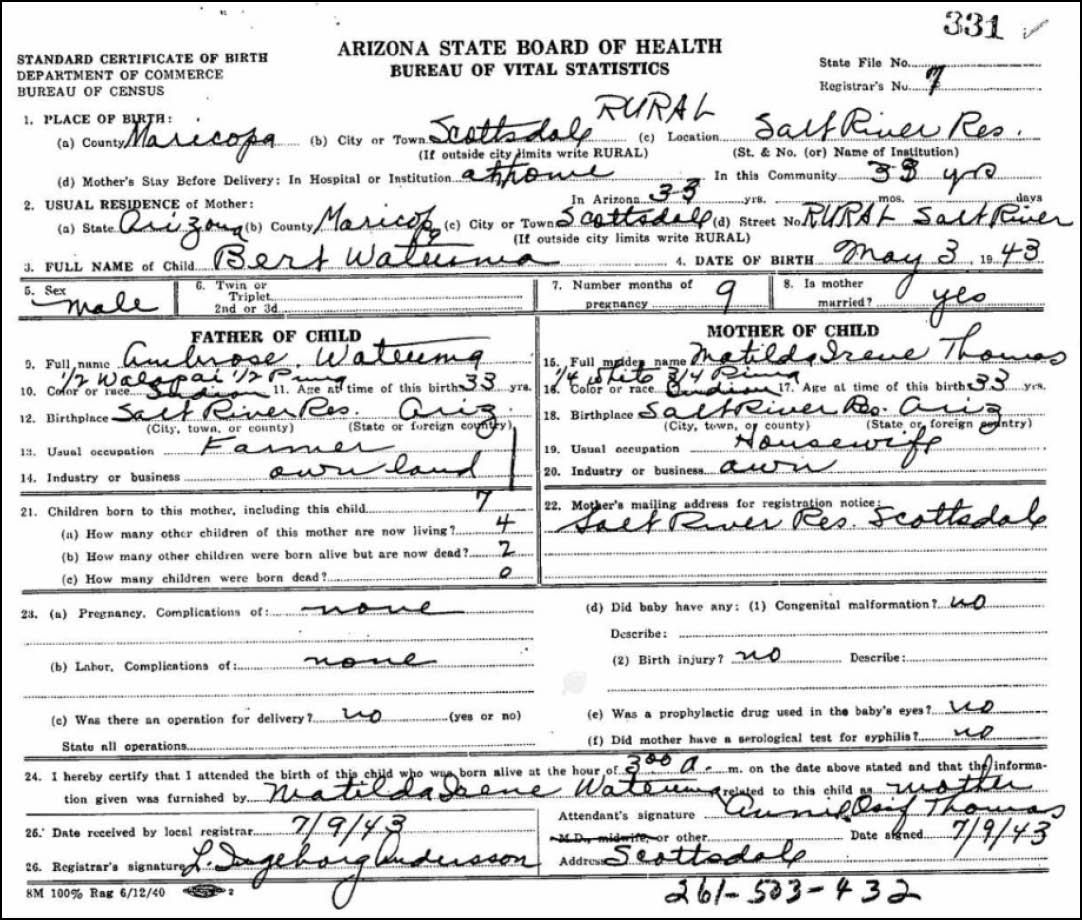 331
STANDARD CERTIFICATE OF BIRTH
DEPARTMENT OF COMMERCE
BUREAU OF CENSUS
ARIZONA STATE BOARD OF HEALTH
BUREAU OF VITAL STATISTICS
State File No.
Registrar's No. 7
1. PLACE OF BIRTH: RURAL
(a) County Maricopa (b) City or Town Scottsdale (c) Location Salt River Res.
(If outside city limits write RURAL) (St. & No. (or) Name of Institution)
(d) Mother's Stay Before Delivery: In Hospital or Institution at home In this Community 33 yrs
In Arizona 33 yrs. mos. days
2. USUAL RESIDENCE of Mother:
(a) State Arizona (b) County Maricopa (c) City or Town Scottsdale (d) Street No. RURAL Salt River
(If outside city limits write RURAL)
3. FULL NAME of Child Bert Watuema 4. DATE OF BIRTH May 3 1943
5. Sex Male
6. Twin or Triplet 2nd or 3d
7. Number months of pregnancy 9
8. Is mother married? yes
FATHER OF CHILD
9. Full name Ambrose Watuema
1/2 Walapai 1/2 Pima
10. Color or race Indian 11. Age at time of this birth 33 yrs.
12. Birthplace Salt River Res. Ariz.
(City, town, or county) (State or foreign country)
13. Usual occupation Farmer
14. Industry or business own land
MOTHER OF CHILD
15. Full maiden name Matilda Irene Thomas
1/4 White 3/4 Pima
16. Color or race Indian 17. Age at time of this birth 33 yrs.
18. Birthplace Salt River Res. Ariz
(City, town, or county) (State or foreign country)
19. Usual occupation Housewife
20. Industry or business own
21. Children born to this mother, including this child 7
(a) How many other children of this mother are now living? 4
(b) How many other children were born alive but are now dead? 2
(c) How many children were born dead? 0
22. Mother's mailing address for registration notice:
Salt River Res. Scottsdale
23. (a) Pregnancy, Complications of: none
(b) Labor, Complications of: none
(c) Was there an operation for delivery? no (yes or no)
State all operations
(d) Did baby have any: (1) Congenital malformation? no
Describe:
(2) Birth injury? no Describe:
(e) Was a prophylactic drug used in the baby's eyes? no
(f) Did mother have a serological test for syphilis? no
24. I hereby certify that I attended the birth of this child who was born alive at the hour of 3:00 A. m. on the date above stated and that the informa-
tion given was furnished by Matilda Irene Watuema related to this child as mother
Attendant's signature Thomas
M.D., midwife, or other Date signed 7/9/43
Address Scottsdale
25. Date received by local registrar 7/9/43
26. Registrar's signature L. Ingeborg Andersson
8M 100% Rag 6/12/40 2
261-503-432